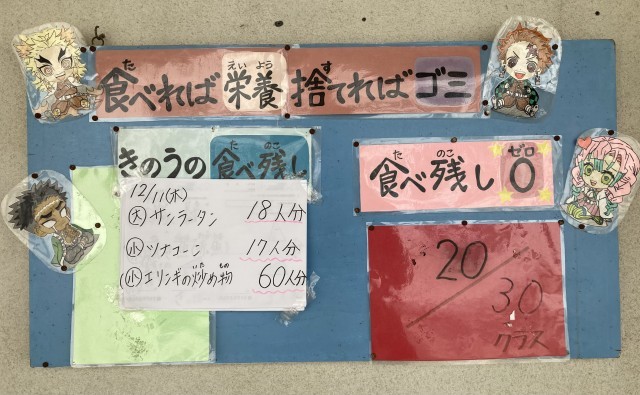 食べれば栄養 捨てればゴミ
た えいよう す
きのうの食べ残し
た のこ
12/11(木)
(大)サンラータン 18人分
(小)ツナコーン 17人分
(小)エリンギの炒め物 60人分
いた もの
食べ残し0
た のこ ゼロ
20/30
クラス